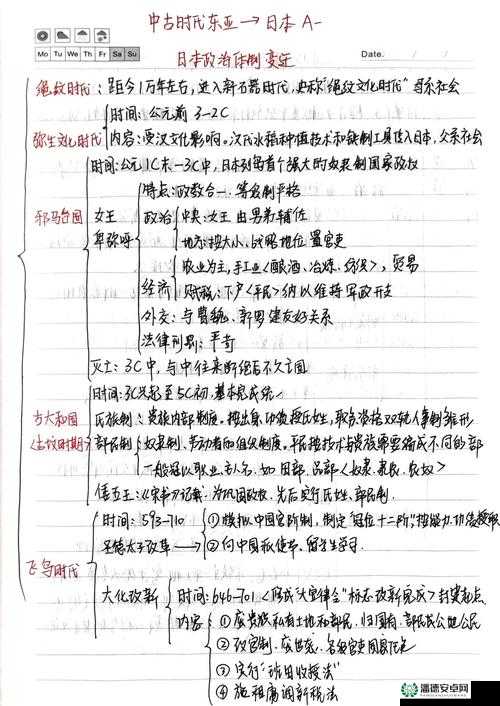 中古时代东亚→日本 A-
Mo Tu We Th Fr Sa Su
Date.
日本政治体制变迁
绳纹时代：距今1万年左右，进入新石器时代，史称"绳纹文化时代"母系社会
弥生文化时代
时间：公元前3-2C
内容：受汉文化影响。汉氏水稻种植技术和铁制工具传入日本，父系社会
邪马台国
时间：公元1C末-3C中，日本列岛首个强大的奴隶制国家政权
女王
卑弥呼
特点：政教合一，等级制严格
政治
中央：女王由男弟辅佐
地方：按大小、战略地位置官吏
经济
农业为主，手工业〈酿酒、冶炼、纺织〉，贸易
赋税：下户〈平民〉纳以维持军政开支
外交：与曹魏、新罗建友好关系
法律刑罚：严苛
灭亡：3C中，与中往来断绝后不久亡国
大和国
〈古坟时期〉
时间：3C兴起至5C初，基本完成统一
氏族制：贵族内部制度。按出身、功绩授氏姓，取务资格双轨人事制雏形
部民制：奴隶制、劳动者的组织制度。平民按技术与贵族需要编成不同的部
一般冠以职业、主人名，如田部、品部
倭五王：《宋书》记载：为巩固政权，先后实行氏姓、部民制.
飞鸟时代
时间：593-710
圣德太子改革→
①模拟中国官阶制，制定"冠位十二阶"，按能力、功绩授
②向中国派使节、留学生学习.
大化改新
时间：646-701〈形成"大宝律令"标志改新完成〉封建起点
内容：①废贵族私有土地和部民，归国有，部民成公地公民
②改官制，废世袭，各级官吏国家任免
③实行"班田收授法"
④施租庸调新税法
潘德安卓网